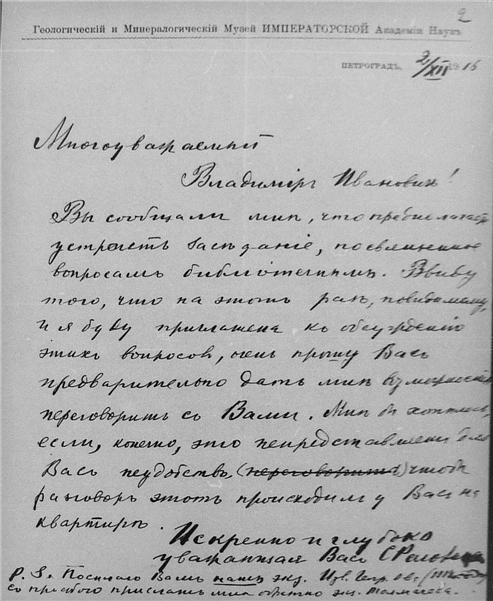 2
Геологическій и Минералогическій Музей ИМПЕРАТОРСКОЙ Академіи Наукъ
ПЕТРОГРАДЪ, 2/XII 1916
Многоуважаемый
Владиміръ Ивановичъ!
Вы сообщали мнѣ, что предполагаете
устроить засѣданіе, посвященное
вопросамъ библіотечнымъ. Ввиду
того, что на этотъ разъ, повидимому,
и я буду приглашена къ обсужденію
этихъ вопросовъ, очень прошу Васъ
предварительно дать мнѣ возможность
переговорить съ Вами. Мнѣ бы хотѣлось,
если, конечно, это непредставляетъ для
Васъ неудобствъ, (переговорить) чтобы
разговоръ этотъ происходилъ у Васъ на
квартирѣ.
Искренно и глубоко
уважающая Васъ
P. S. Посылаю Вамъ нашъ экз. Изв.
съ просьбой прислать мнѣ обратно экз. Толмачева.